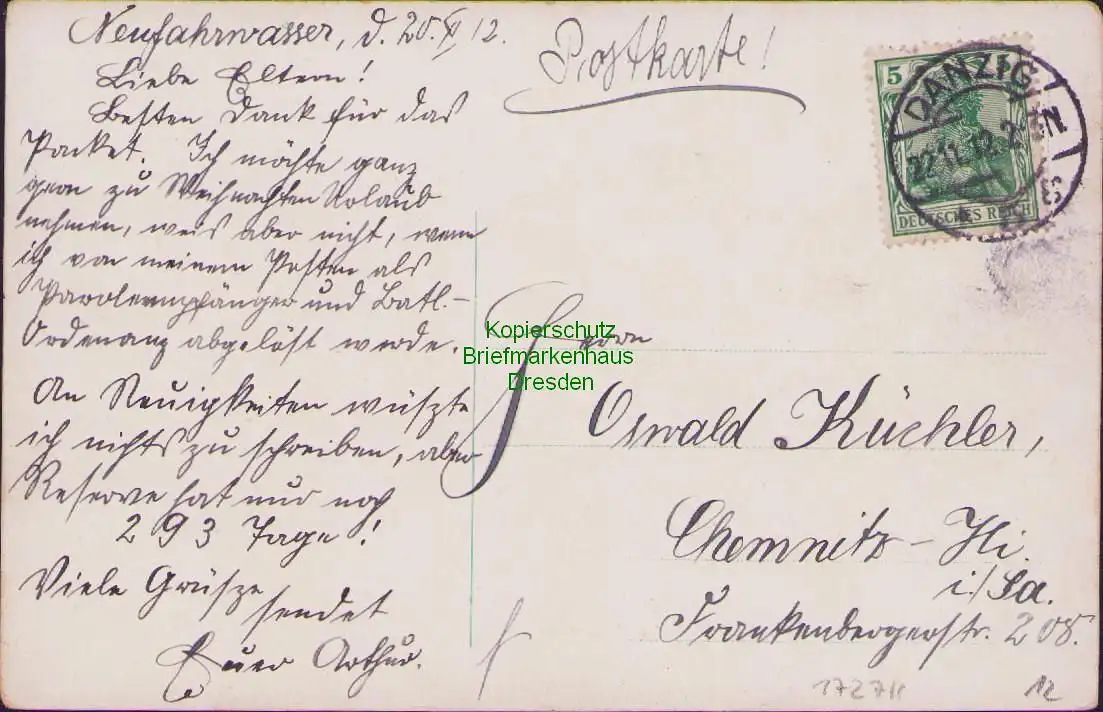 Neufahrwasser, d. 20. XI 12.
Liebe Eltern!
Besten Dank für das
Packet. Ich möchte ganz
gern zu Weihnachten Urlaub
nehmen, weis aber nicht, wenn
ich von meinem Posten als
Parolempfänger und Batl-
Ordenanz abgelöst werde.
An Neuigkeiten wüszte
ich nichts zu schreiben, aber
Reserve hat nur noch
293 Tage!
Viele Grüsze
sendet
Euer Arthur.
Postkarte!
5
DANZIG
22.11.12.
DEUTSCHES REICH
Kopierschutz
Briefmarkenhaus
Dresden
Herrn
Oswald Küchler,
Chemnitz - Hi.
i./Sa.
Frankenbergerstr. 208.